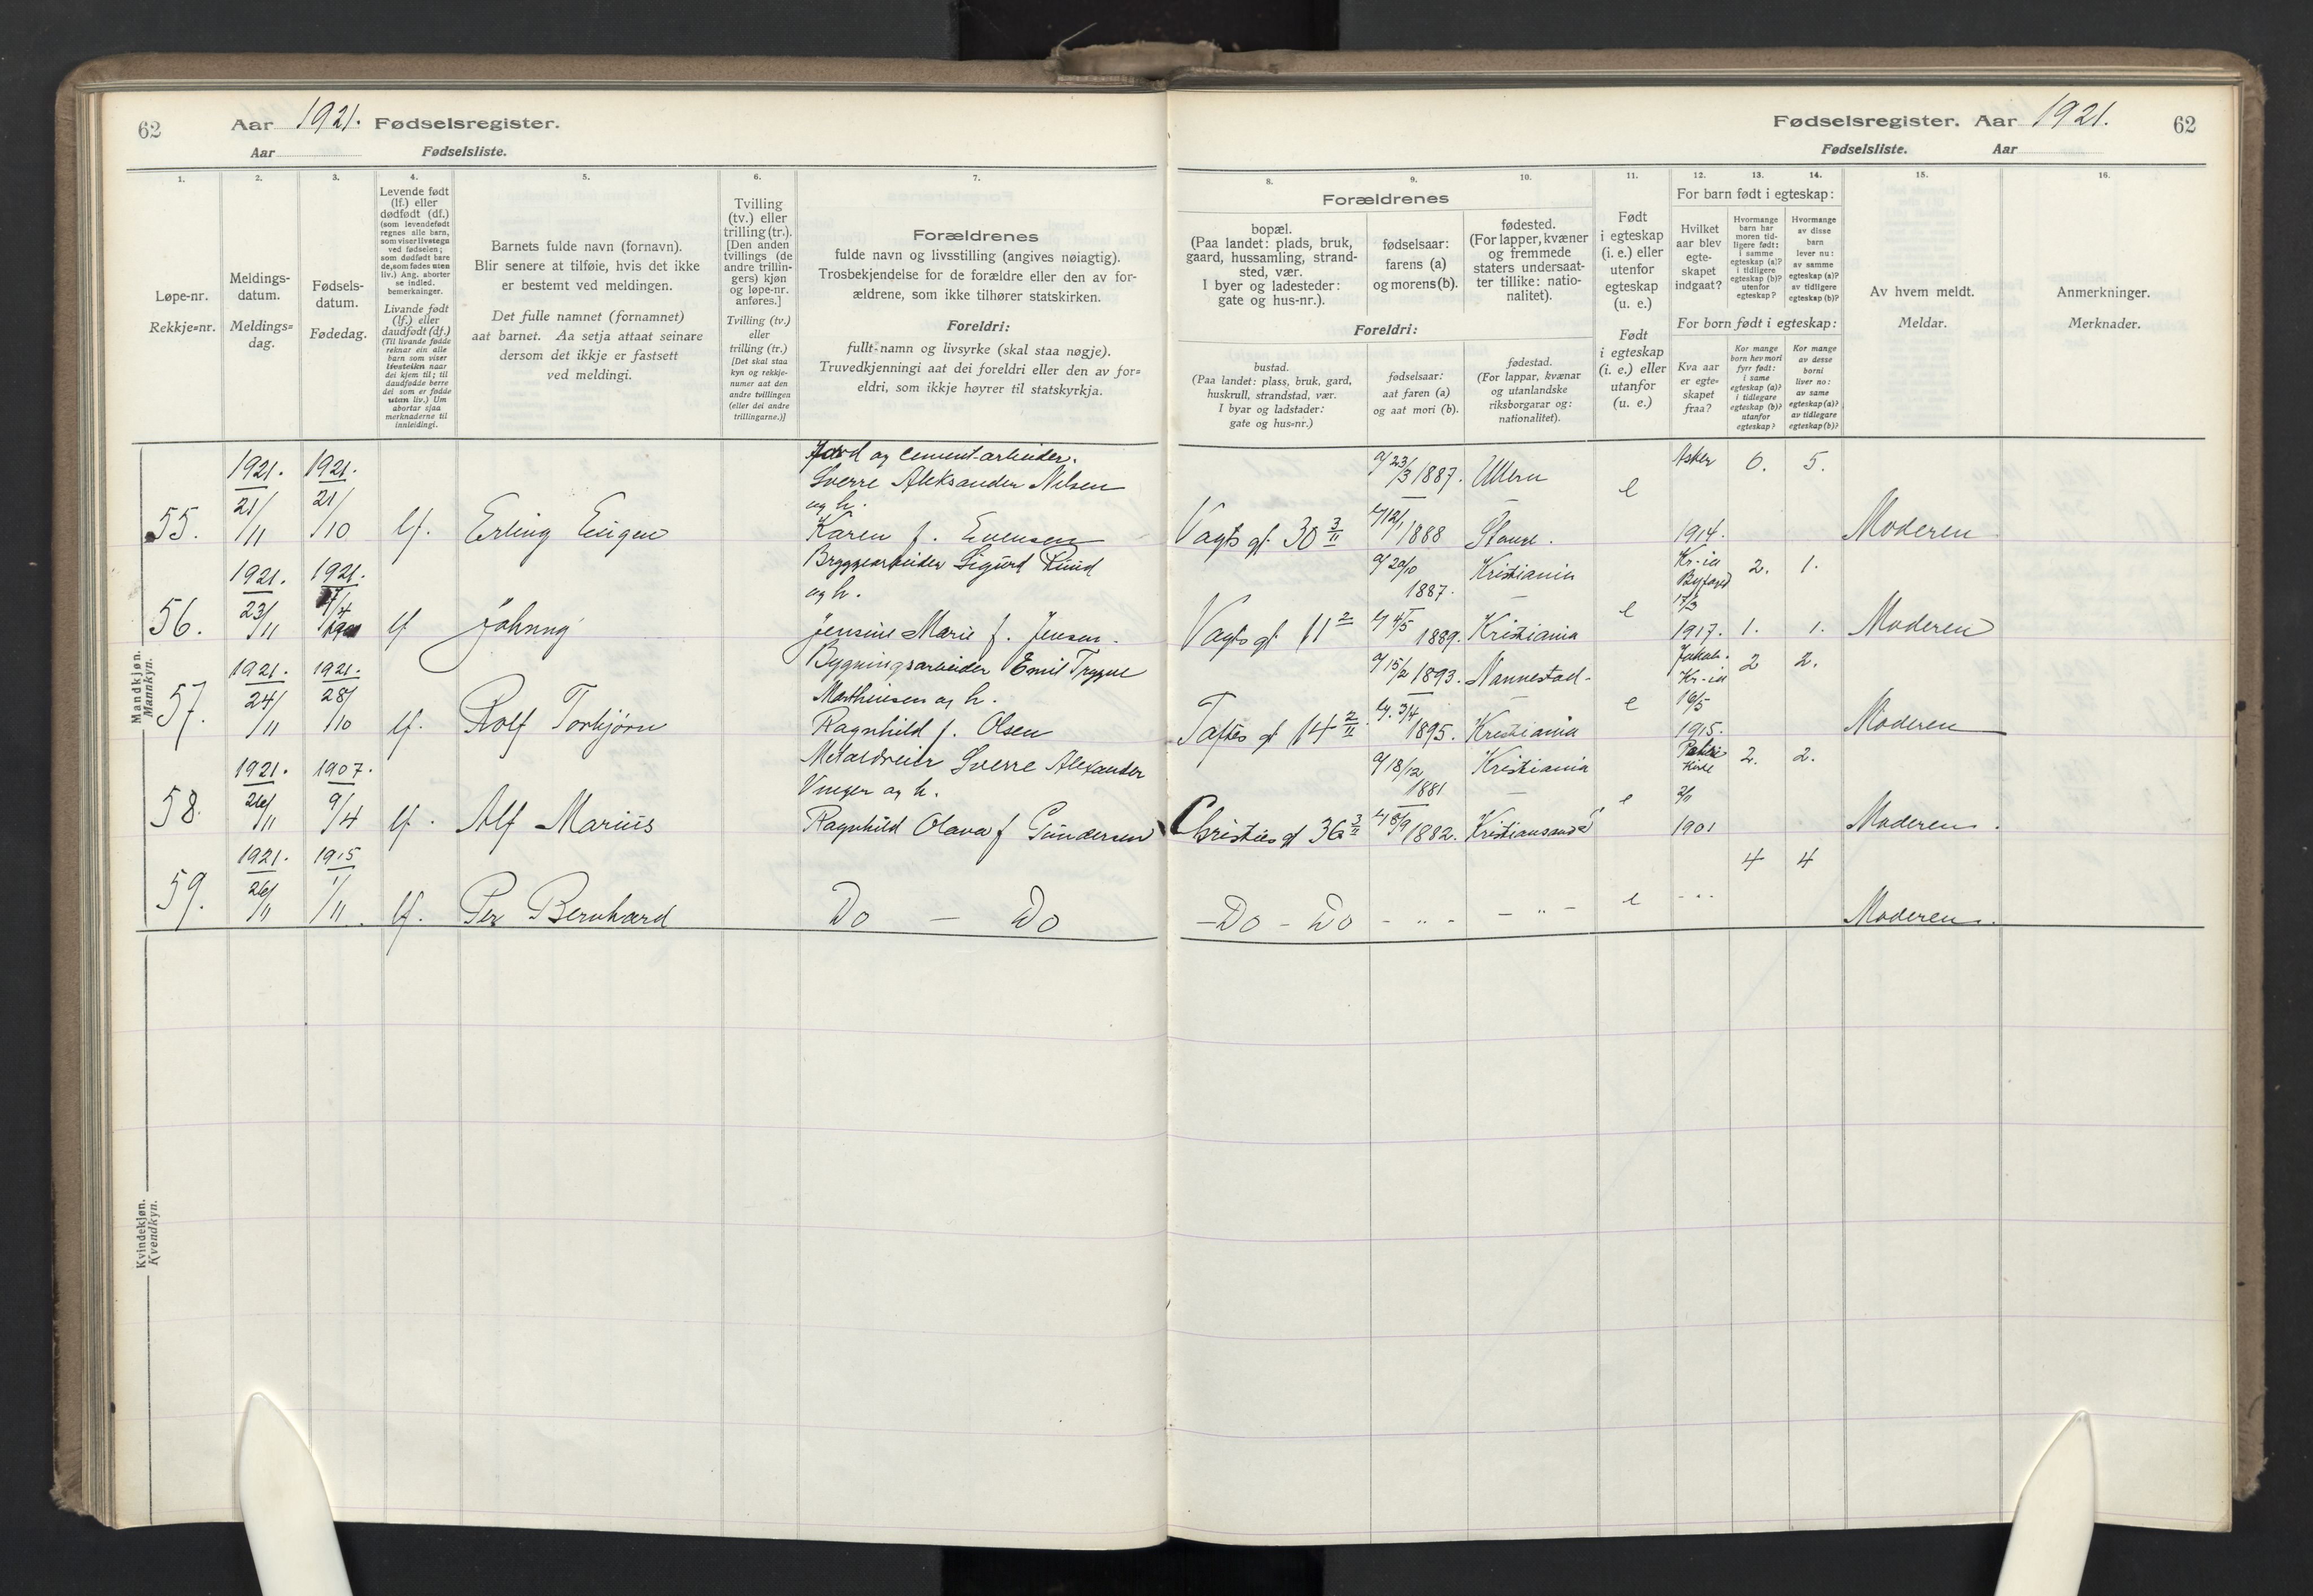 62
Aar 1921. Fødselsregister.
Aar Fødselsliste.
1.
Løpe-nr.
Rekkje=nr.
2.
Meldings-
datum.
Meldings=
dag.
3.
Fødsels-
datum.
Fødedag.
4.
Levende født
(lf.) eller
dødfødt (df.)
(som levendefødt
regnes alle barn,
som viser livstegn
ved fødselen;
som dødfødt bare
de, som fødes uten
liv.) Ang. aborter
se indled.
bemerkninger.
Livande født
(lf.) eller
daudfødt (df.)
(Til livande fødde
reknar ein alle
barn som viser
livsteikn naar
dei kjem til; til
daudfødde berre
dei som er fødde
utan liv.) Um
abortar sjaa
merknaderne til
innleidingi.
5.
Barnets fulde navn (fornavn).
Blir senere at tilføie, hvis det ikke
er bestemt ved meldingen.
Det fulle namnet (fornamnet)
aat barnet. Aa setja attaat seinare
dersom det ikkje er fastsett
ved meldingi.
6.
Tvilling
(tv.) eller
trilling (tr.).
[Den anden
tvillings (de
andre trillin-
gers) kjøn
og løpe-nr.
anføres.]
Tvilling (tv.)
eller
trilling (tr.)
[Det skal staa
kyn og rekkje-
numer aat den
andre tvillingen
(eller dei andre
trillingarne.)]
7.
Forældrenes
fulde navn og livsstilling (angives nøiagtig).
Trosbekjendelse for de forældre eller den av for-
ældrene, som ikke tilhører statskirken.
Foreldri:
fullt-namn og livsyrke (skal staa nøgje).
Truvedkjenningi aat dei foreldri eller den av for=
eldri, som ikkje høyrer til statskyrkja.
Mandkjøn.
Mannkyn.
1921. 1921. Jord og cement-arbeider.
21/11 21/10 Sverre Aleksander Nilsen
og h.
55. lf. Erling Eugen Karen f. Evensen
1921. 1921. Bryggearbeider Sigurd Ruud
23/11 og h.
56. lf Johnny Jensine Marie f. Jensen.
1921. 1921. Bygningsarbeider Emil Trygve
24/11 28/10 Marthinsen og h.
57. lf. Rolf Torbjørn Ragnhild f. Olsen
1921. 1907. Metaldreier Sverre Alexander
26/11 9/4 Vinger og h.
58. lf. Alf Marius Ragnhild Olava f Gundersen
1921. 1915
26/11 1/11.
59. lf. Per Bernhard Do — Do
Kvindekjøn.
Kvendkyn.
Fødselsregister. Aar 1921. 62
Fødselsliste. Aar
8.
Forældrenes
bopæl.
(Paa landet: plads, bruk,
gaard, hussamling, strand-
sted, vær.
I byer og ladesteder:
gate og hus-nr.).
Foreldri:
bustad.
(Paa landet: plass, bruk, gard,
huskrull, strandstad, vær.
I byar og ladstader:
gate og hus=nr.)
9.
fødselsaar:
farens (a)
og morens (b).
fødselsaar:
aat faren (a)
og aat mori (b).
10.
fødested.
(For lapper, kvæner
og fremmede
staters undersaat-
ter tillike: natio-
nalitet).
fødestad.
(For lappar, kvænar
og utanlandske
riksborgarar og:
nationalitet).
11.
Født
i egteskap
(i. e.) eller
utenfor
egteskap
(u. e.)
Født
i egteskap
(i. e.) eller
utanfor
egteskap
(u. e.)
12.
For barn født i egteskap:
Hvilket
aar blev
egte-
skapet
indgaat?
For born født i egteskap:
Kva aar
er egte=
skapet
fraa?
13.
Hvormange
barn har
moren tid-
ligere født:
i samme
egteskap (a)?
i tidligere
egteskap (b)?
utenfor
egteskap?
Kor mange
born hev mori
fyrr født:
i same
egteskap (a)?
i tidlegare
egteskap (b)?
utanfor
egteskap?
14.
Hvormange
av disse
barn
lever nu:
av samme
egteskap (a)?
av tidligere
egteskap (b)?
Kor mange
av desse
borni
liver no:
av same
egteskap (a)?
av tidlegare
egteskap (b)?
15.
Av hvem meldt.
Meldar.
16.
Anmerkninger.
Merknader.
a/ 23/3 1887. Ullern Asker 6. 5.
e
Vagts gt 30 3/II b/ 12/1 1888 Stange. 1914. Moderen
a/ 20/10 1887. Kristiania Kr-ia Byfogd 2. 1.
e 17/3
Vagts gt 11 2 b/ 4/5 1889. Kristiania 1917. 1. 1. Moderen
a/ 15/2 1893. Nannestad. Jakob. Kr-ia 2 2.
e 16/5
Toftes gt 14 2/II b/. 3/4 1895. Kristiania 1915. Moderen
a/ 18/12 1881 Kristiania Kirke 2. 2.
e
Christies gt 36 3/II 1882. Kristiansand 1901 Moderen.
4 4
e
— Do — Do - „ - — „ — - „ Moderen.